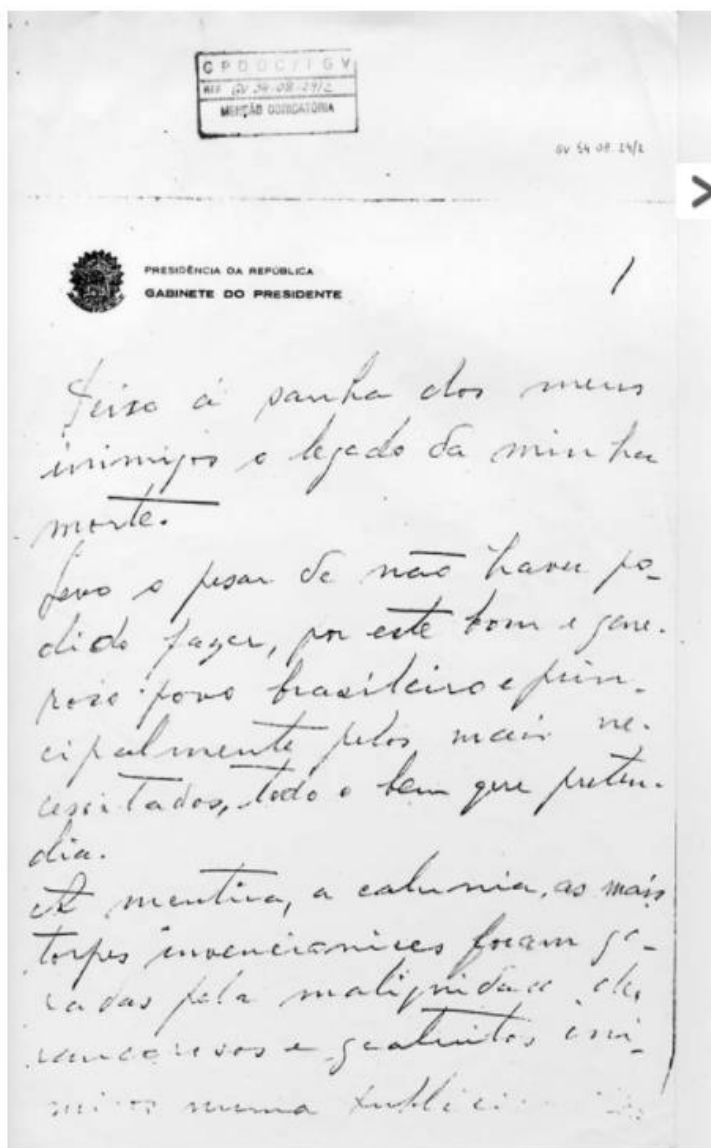 CPDOC/FGV
REF GV 54.08.24/2
MENÇÃO OBRIGATÓRIA
GV 54 08 24/2
PRESIDÊNCIA DA REPÚBLICA
GABINETE DO PRESIDENTE
1
Deixo á sanha dos meus
inimigos o legado da minha
morte.
Levo o pesar de não haver po-
dido fazer, por este bom e gene-
roso povo brasileiro e prin-
cipalmente pelos mais ne-
cessitados, todo o bem que preten-
dia.
A mentira, a calunia, as mais
torpes invencionices foram ge-
radas pela malignidade de
rancorosos e gratuitos ini-
migos numa